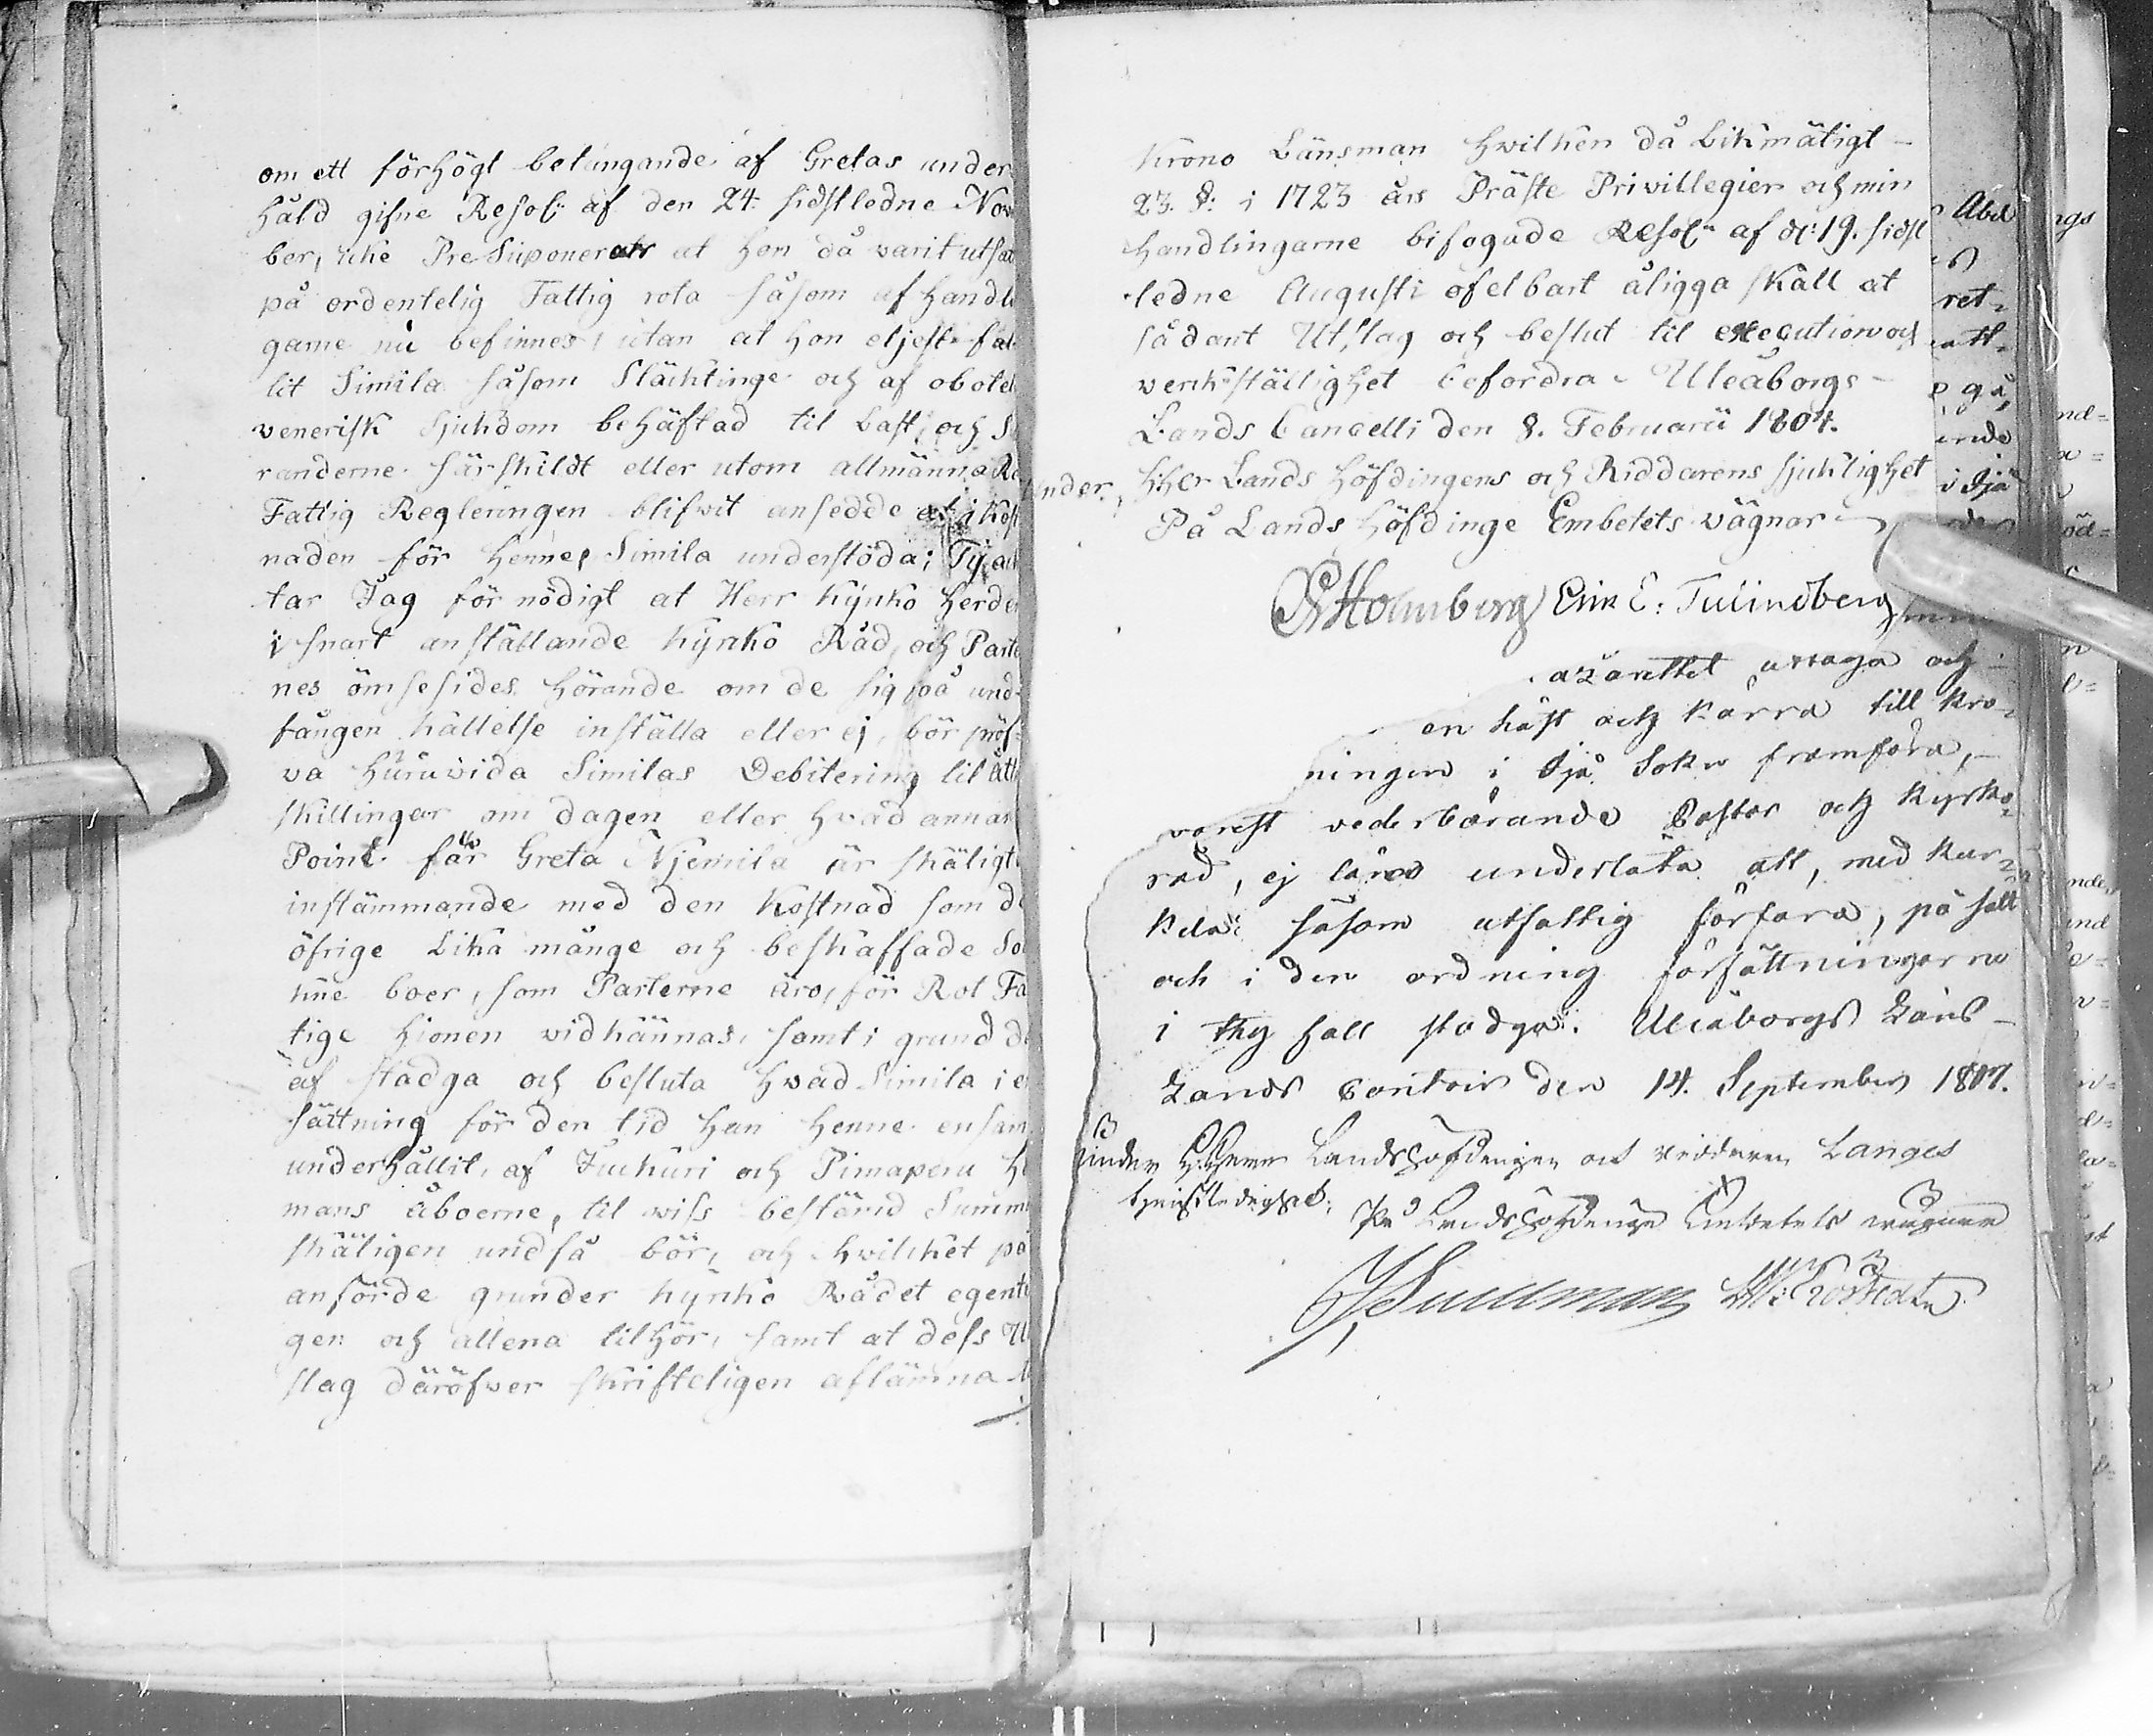 om ett förhögt belangande af Gretas under
håld gifne Resol: af den 24. sidstledne Nov
ber, icke PreSuponerats at hon då varit utsat
på ordentelig Fattig rota såsom af handl
garne nu befinnes, utan at hon eljest fal
lit Simila såsom Släcktinge och af obotel
venerisk Sjukdom behäftad til Last, och S
randerne särskildt eller utom allmänna Ro
Fattig Regleringen blifvit ansedde at i kost
naden för Henne, Simila understöda; Ty ac
tar Jag för nödigt at Herr Kyrko Herde
i snart anställande Kyrko Råd, och Parte
nes ömsesides hörande om de sig på und
fången kallelse inställa eller ej, bör pröf
va huruvida Similas Debitering til Åtta
skillingar om dagen eller hvad annan
Point för Greta Njemila är skäligt
instämmande med den Kostnad som de
öfrige Lika månge och beskaffade So
kne boer, som Parterne äro, för Rot Fa
tige Hionen vidkännas, samt i grund de
af stadga och besluta hvad Simila i er
sättning för den tid han Henne ensam
underhållit, af Juckuri och Pimaperu He
mans åboerne, til viss bestämd Summ
skäligen undfå bör, och hvilcket på
anförde grunder Kyrko Rådet egente
gen och allena tilhör, samt at dess U
slag däröfver skrifteligen aflämna
Krono Länsman hvilken då Likmätigt
23. §: i 1723 års Präste Privillegier och min
handlingarne bifogade Resol:n af d: 19. sidst
ledne Augusti ofelbart åligga skall at
sådant Utslag och beslut til execution och
verkställighet befordra. Uleåborgs
Lands Cancelli den 8. Februarii 1804.
Under HHer Lands Höfdingens och Riddarens sjuklighet
På Lands Höfdinge Embetets vägnar
Holmberg Erik E: Tulindberg
azarettet antaga och
en häst och kärra till Kro
ningen i Sjö Sokn framföra,
varest vederbörande Pastor och Kyrko
råd, ej lärer underlåta att, med
såsom utfattig förfara, på sätt
och i den ordning författningarne
i thy fall stadga. Uleåborgs Läns
Lands Contoir den 14. September 1807.
Under HHerr Landshöfdingen och Riddaren Langes
tjenstledighet,
På Landshöfdinge Embetets vägnar